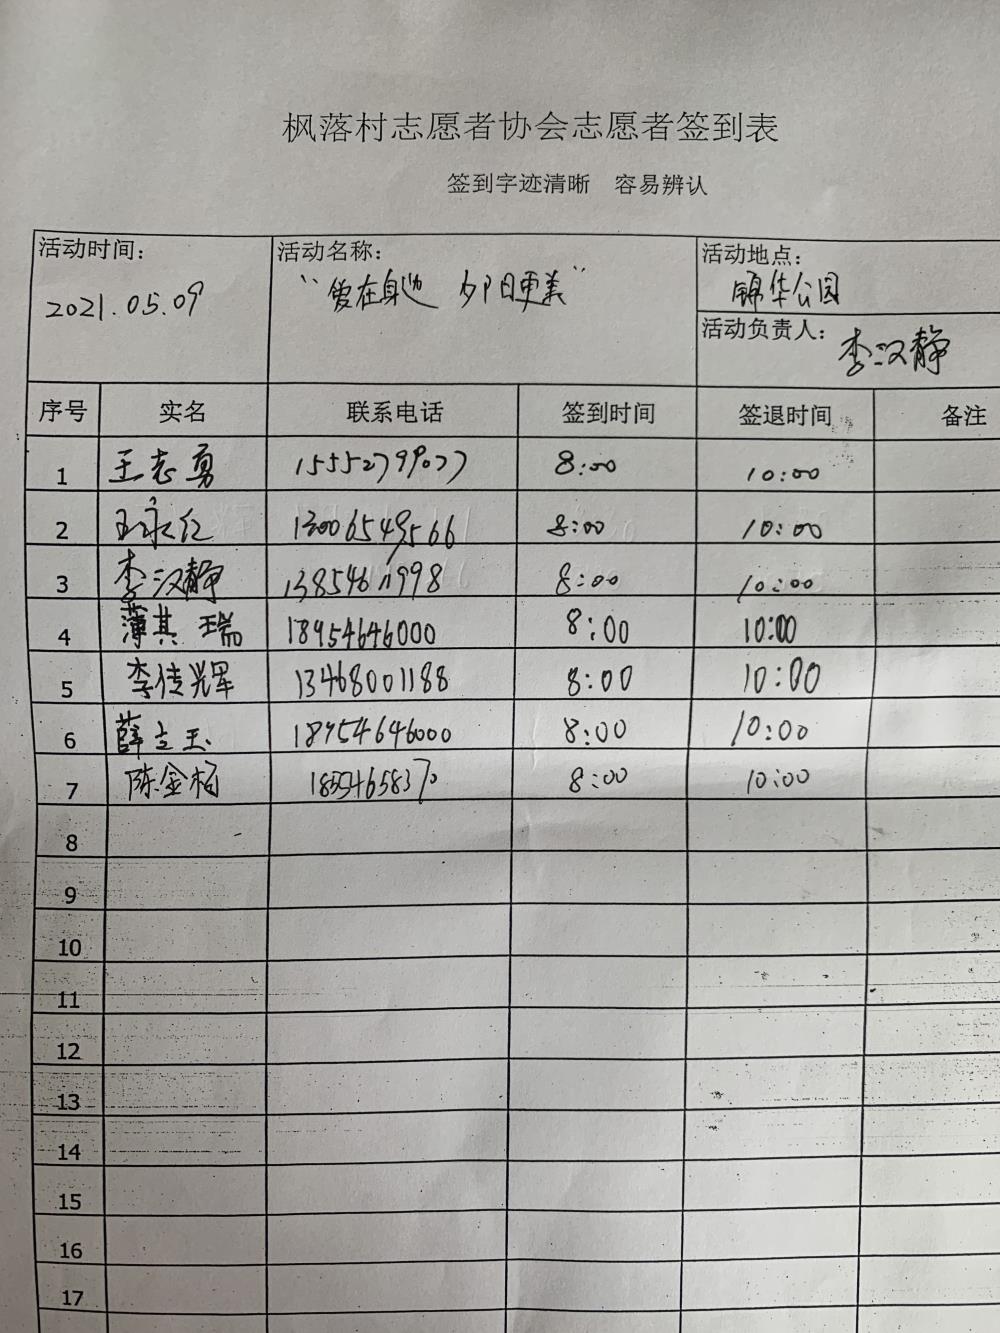 枫落村志愿者协会志愿者签到表
签到字迹清晰 容易辨认
活动时间： 活动名称： 活动地点：
2021.05.09 “爱在身边 夕阳更美” 锦华公园
活动负责人： 李汉静
序号 实名 联系电话 签到时间 签退时间 备注
1 王志勇 15552799077 8:00 10:00
2 王永红 13006549566 8:00 10:00
3 李汉静 13854611998 8:00 10:00
4 薄其瑞 18954646000 8:00 10:00
5 李佳辉 13468001188 8:00 10:00
6 薛立玉 18954646000 8:00 10:00
7 陈金柏 18554658370 8:00 10:00
8
9
10
11
12
13
14
15
16
17